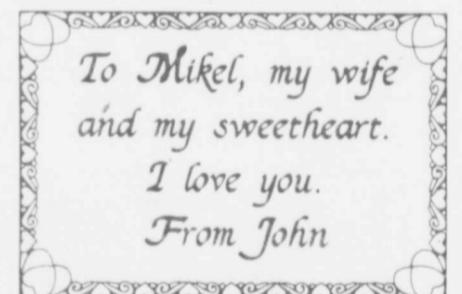 To Mikel, my wife
and my sweetheart.
I love you.
From John